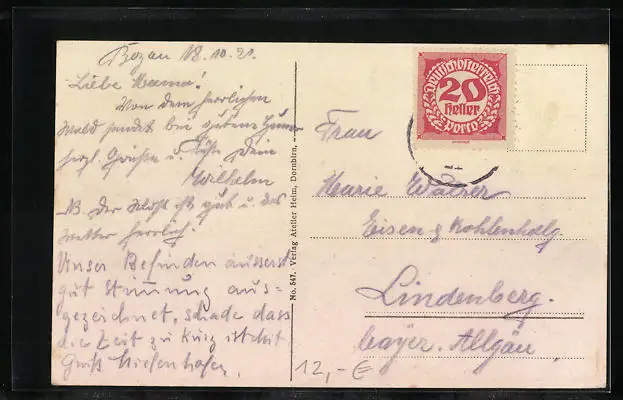 Bezau 18.10.21.
Liebe Mama!
Von dem herrlichen
Wald sendet bei gutem Humor
herzl. Grüsse u. Küsse Dein
Wilhelm
NB. Der Most ist gut u. das
Wetter herrlich!
Unser Befinden äusserst
gut Stimmung aus-
gezeichnet, schade dass
die Zeit zu kurz ist
Gruss
No. 547. Verlag Atelier Heim, Dornbirn.
Deutschösterreich
20
Heller
Porto
Frau
Marie Walser
Eisen & Kohlenhdlg.
Lindenberg.
bayer. Allgäu.
12,-€